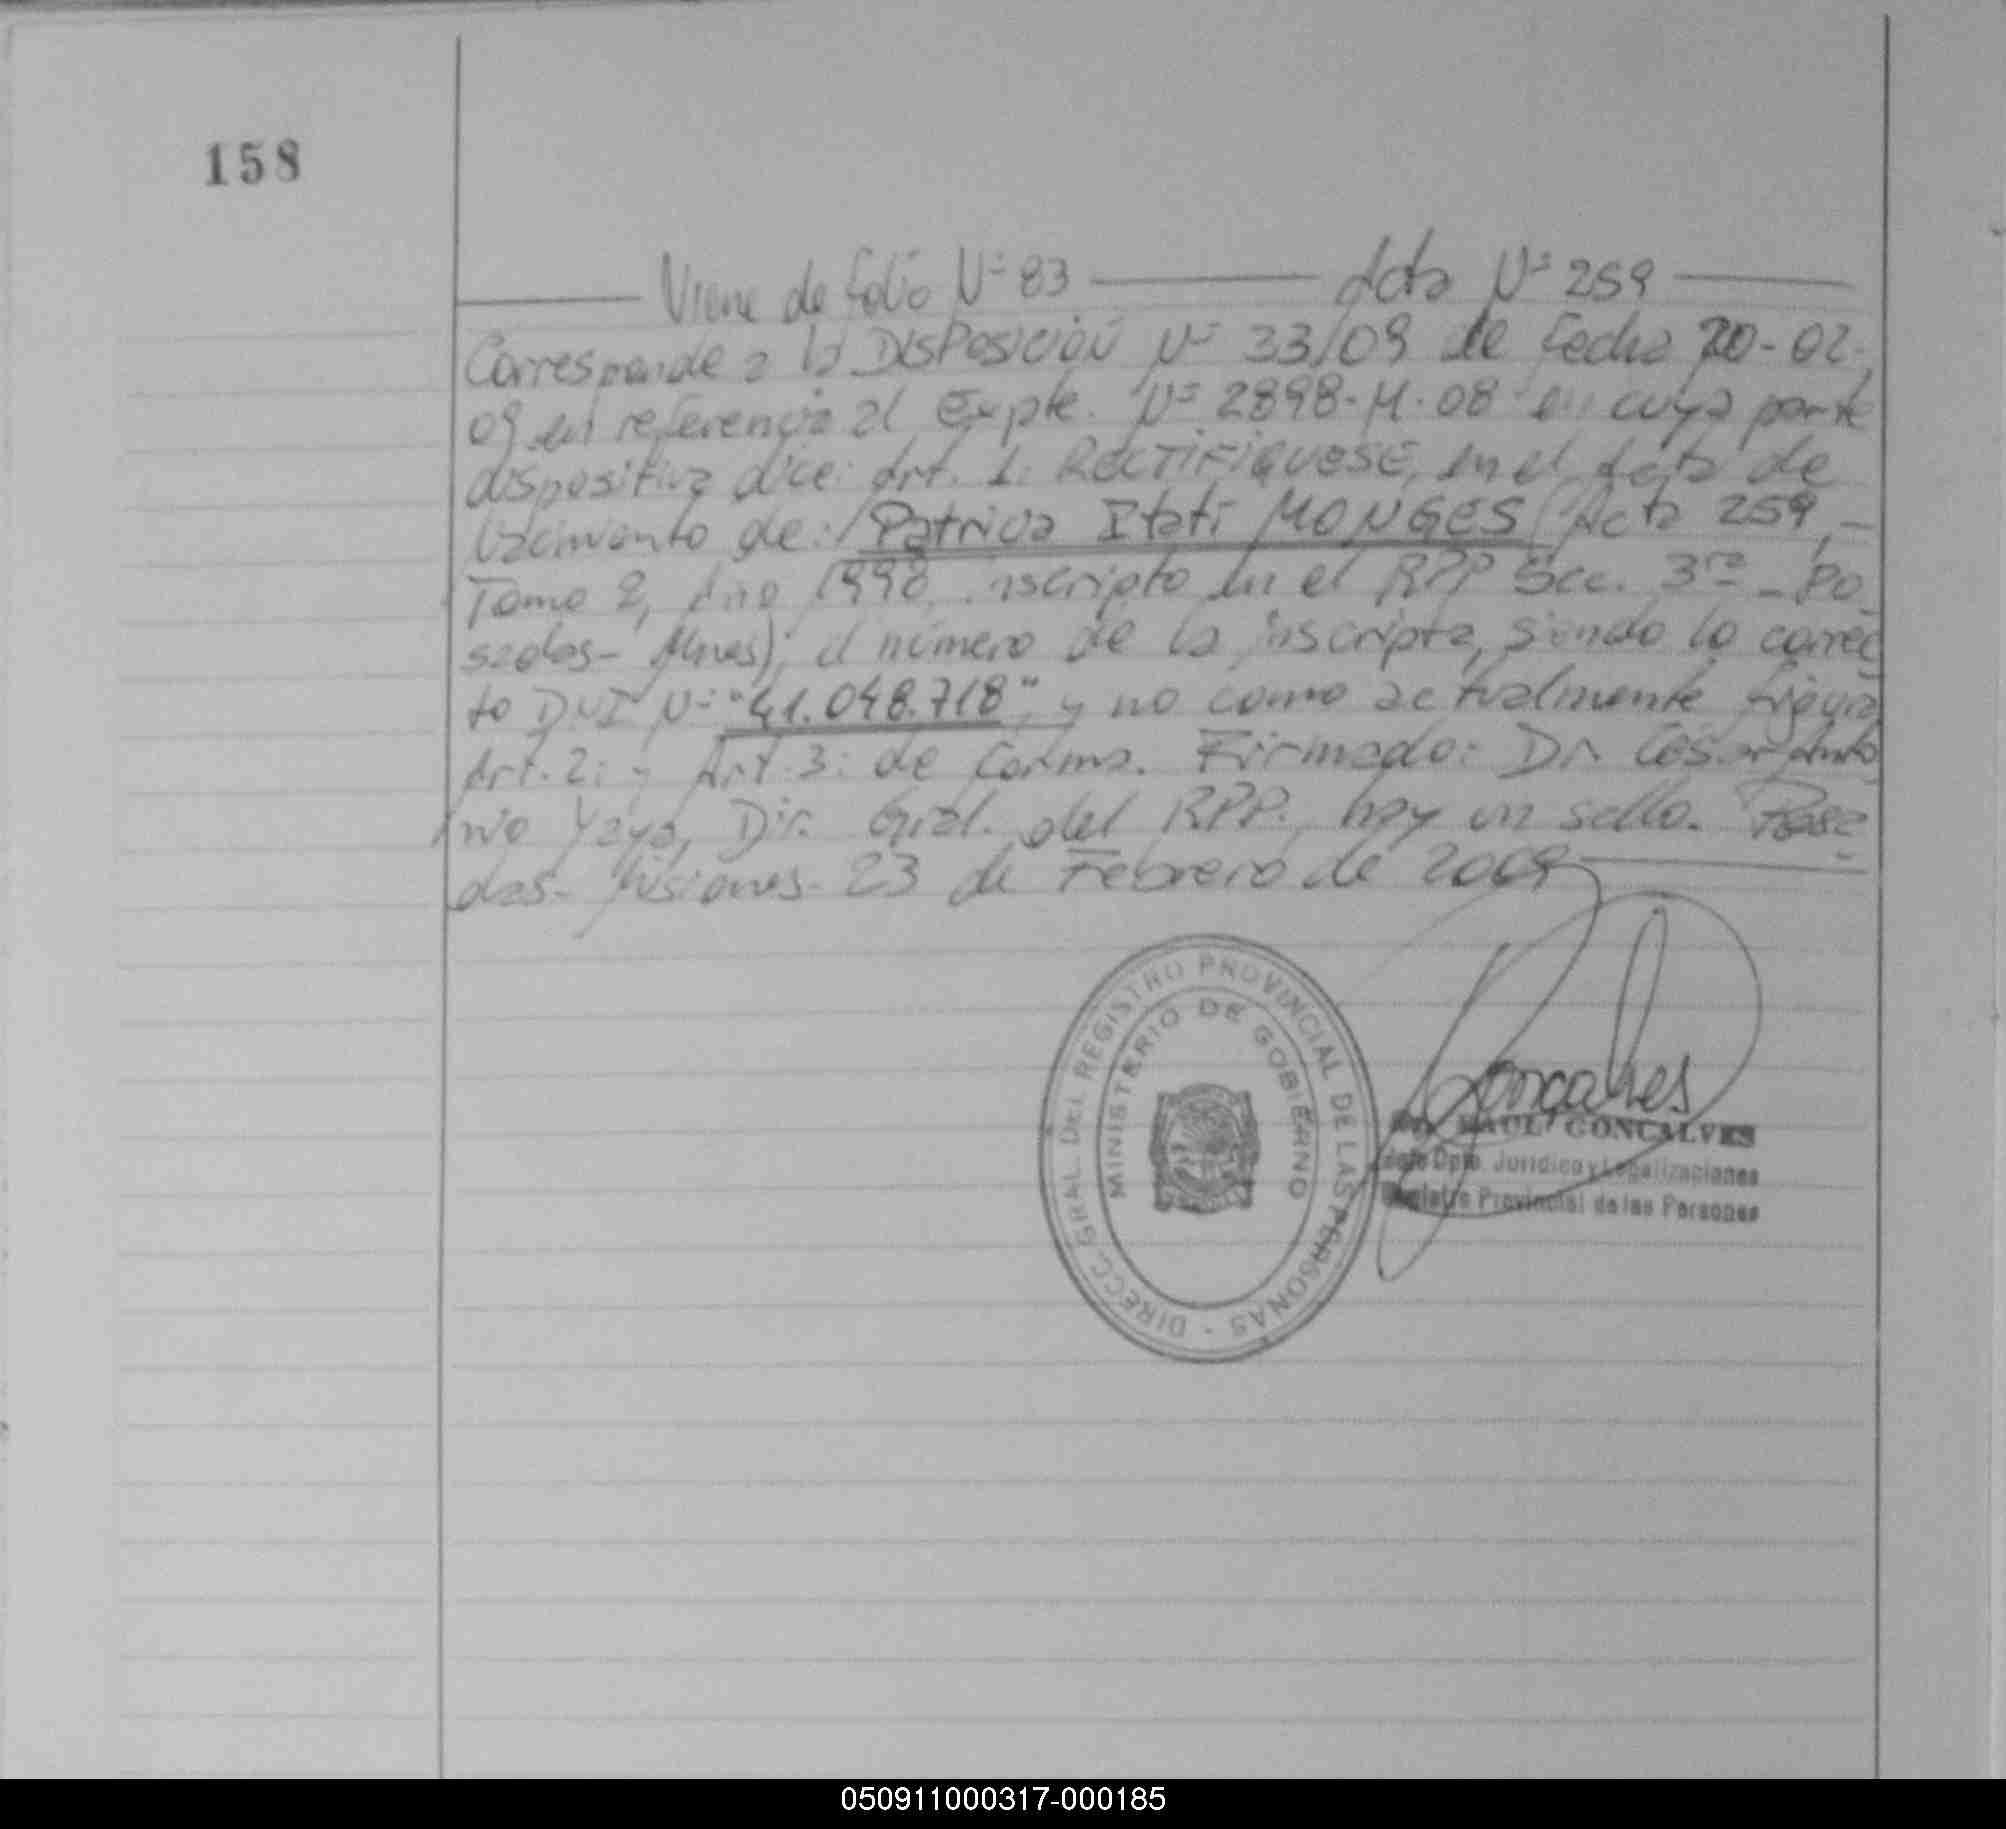 158
Viene de folio Nº 83 Acta Nº 259
Corresponde a la DISPOSICIÓN Nº 33/09 de fecha 20-02-
09 en referencia al Expte. Nº 2898-M-08 en cuya parte
dispositiva dice: Art. 1: RECTIFIQUESE, en el Acta de
Nacimiento de: Patricia Itatí MONGES (Acta 259,-
Tomo 2, Año 1998, inscripto en el RPP Secc. 3ra - Po-
sadas- Mnes); el número de la inscripta, siendo lo correc-
to DNI Nº "41.048.718", y no como actualmente figura
Art. 2: y Art. 3: de forma. Firmado: Dr. César Anto-
nio Yaya, Dir. Gral. del RPP, hay un sello. Posa-
das- Misiones- 23 de Febrero de 2009
DIRECC. GRAL. DEL REGISTRO PROVINCIAL DE LAS PERSONAS -
MINISTERIO DE GOBIERNO
Goncalves
RAUL GONCALVES
Jefe Dpto. Jurídico y Legalizaciones
Registro Provincial de las Personas
050911000317-000185